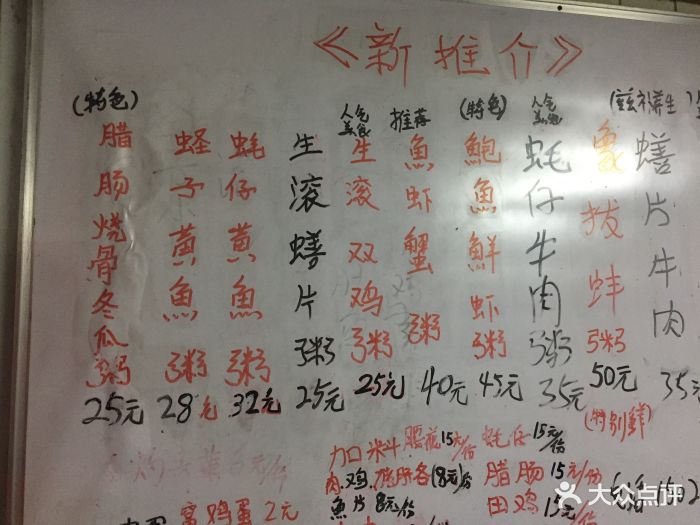 《新推介》
(特色)
腊肠烧骨冬瓜粥
25元
蛏子黄魚粥
28元
蚝仔黄魚粥
32元
生滚蟮片粥
25元
人气美食
生滚双鸡粥
25元
推荐
魚虾蟹粥
40元
(特色)
鮑魚鮮虾粥
45元
人气美食
蚝仔牛肉粥
35元
象拔蚌粥
50元
(特别鲜)
(滋补养生)
蟮片牛肉
35元
加料
腰花15元/份
蚝仔15元/份
肉.鸡.
各(8元)份
腊肠15元/份
魚片8元/份
田鸡15元/份
窝鸡蛋2元
大众点评